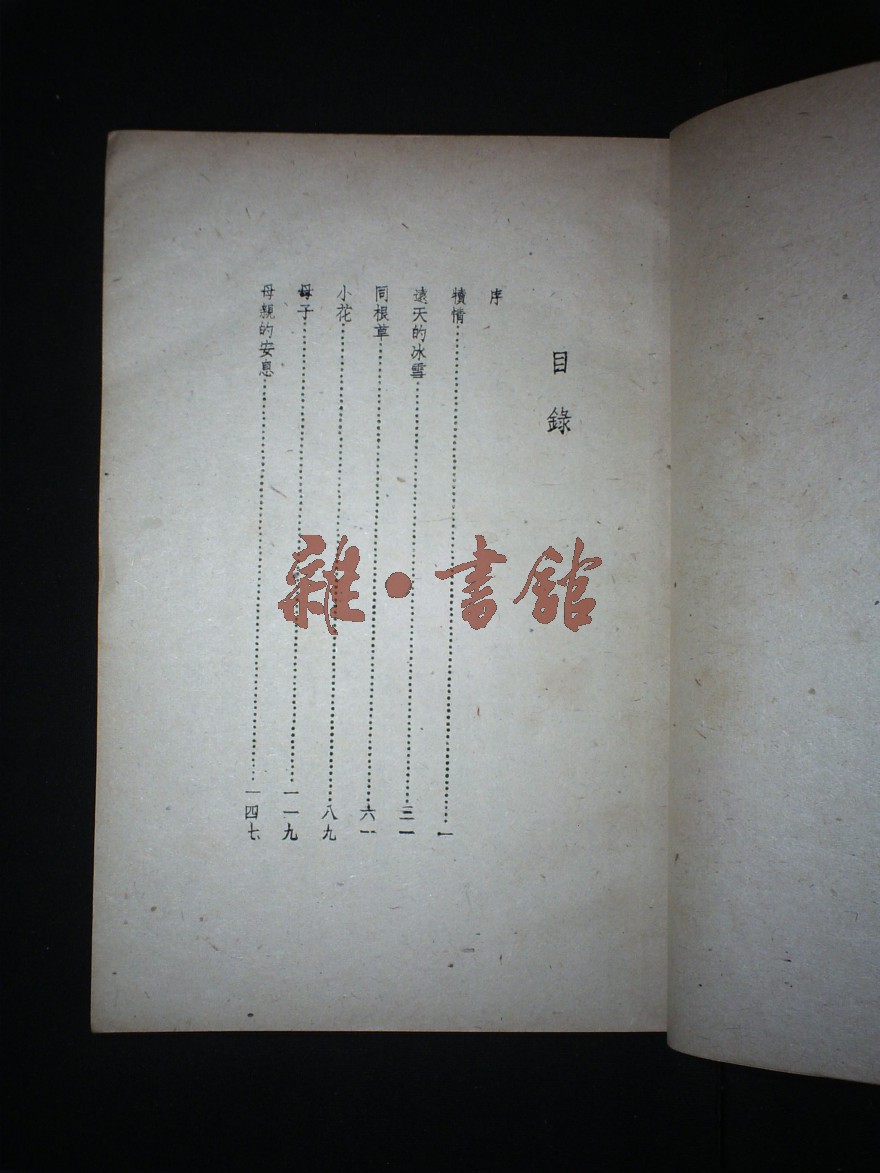 目錄
序
犢情…………一
遠天的冰雪…………三一
同根草…………六一
小花…………八九
母子…………一一九
母親的安息…………一四七
雜•書館